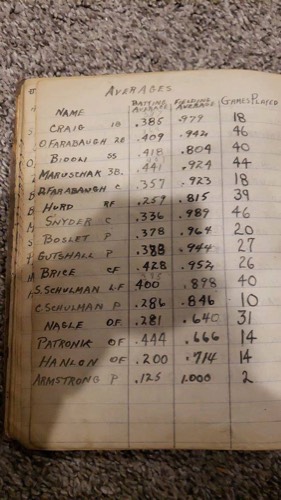 AVERAGES
NAME BATTING AVERAGE FIELDING AVERAGE GAMES PLAYED
CRAIG 1B .385 .979 18
O.FARABAUGH 2B .409 .942 46
BIDOLI SS .418 .804 40
MARUSCHAK 3B. .441 .924 44
D.FARABAUGH C .357 .923 18
HURD RF .259 .815 39
SNYDER C .336 .989 46
BOSLET P .378 .964 20
GUTSHALL P .388 .944 27
BRICE CF .428 .952 26
S.SCHULMAN LF 400 .898 40
C.SCHULMAN P .286 .846 10
NAGLE OF .281 .640 31
PATRONIK OF .444 .666 14
HANLON OF .200 .714 14
ARMSTRONG P .125 1.000 2